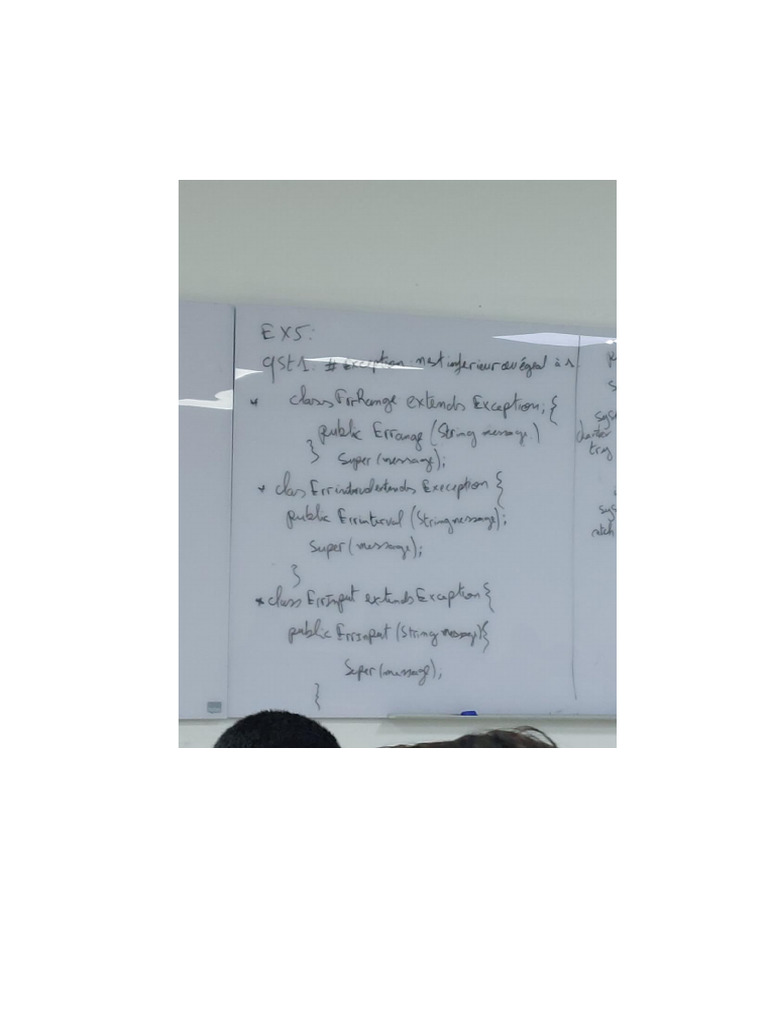 EX5:
qst1: # exception: n est inferieur ou égal à 1.
* class ErrRange extends Exception; {
public Errange (String message)
} Super (message);
* clas Errinterval extends Exception {
public Errinterval (String message);
Super (message);
}
* class ErrInput extends Exception {
public ErrInput (String message){
Super (message);
}
p
s
sys
s